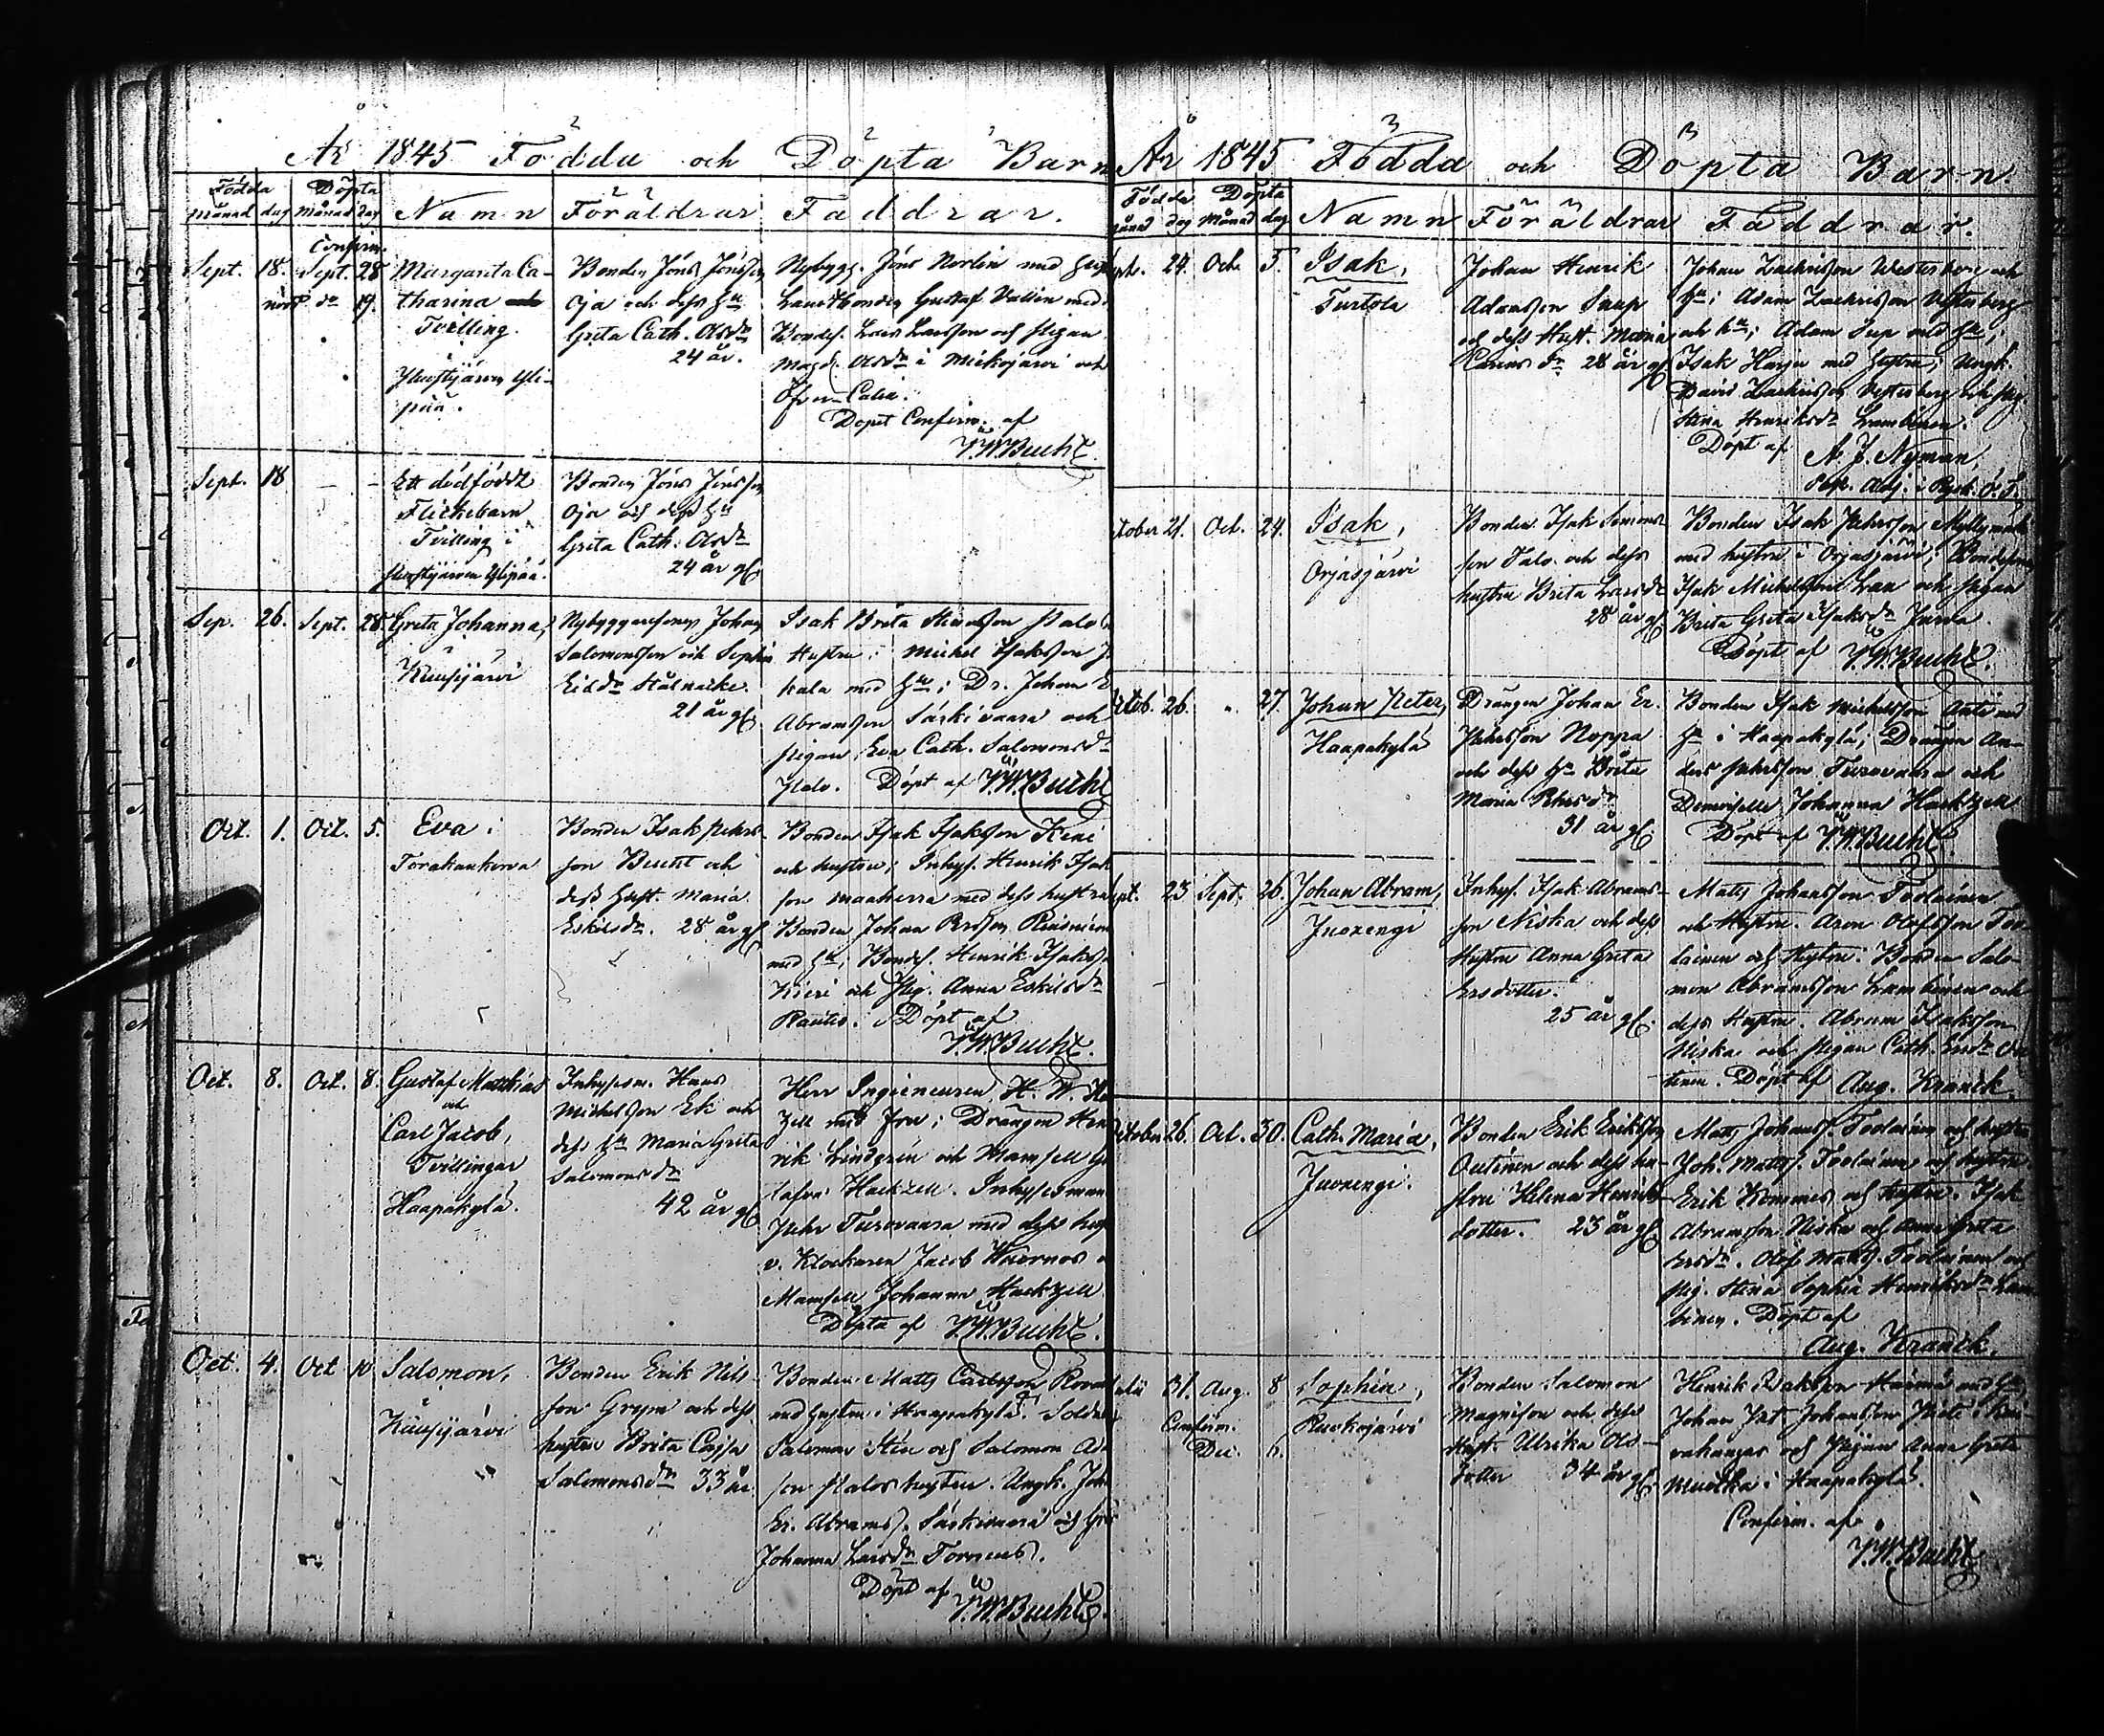 År 1845 Födda och Döpta Barn
Födda Döpta
månad dag månad dag Namn Föräldrar Faddrar.
Confirm.
Sept. 18. Sept. 28
nöddöpt dn 19.
Margareta Ca-
tharina
Tvilling.
Bonden Jöns Jönsson
Oja och dess Hu
Greta Cath. Olsdr
24 år.
Nybygg. Jöns Norlin med hustru
Landtbonden Gustaf Vallin med
Bondes. Lars Larsson och pigan
Magd. Olsdr i Mickojärvi och
Döpet Confirm. af
V.W.Bucht.
Sept. 18 – –
Ett dödfödt
Flickebarn
Tvilling i
Bonden Jöns Jönsson
Oja och dess Hu
Greta Cath. Olsdr
24 år gl.
Sep. 26. Sept. 28.
Greta Johanna,
Kuusijärvi
Nybyggaresonen Johan
Salomonsson och Sophia
Ersdr Stålnacke.
21 år gl.
Hustru; Michel Isaksson
kala med Hu; Dr. Johan E
Abramsson Särkivaara och
pigan Eva Cath. Salomonsdr
Palo. Döpt af V.W.Bucht
Oct. 1. Oct. 5.
Eva i
Torakankorva
Bonden Isak Pehrs-
son Bucht och
dess Hust. Maria
Eskilsdr. 28 år gl.
Bonden Isak Isaksson Kieri
och hustru; Inhys. Henrik Isak
son Maaherra med dess hustru
Bonden Johan Persson
med Hu; Bondes. Henrik Isaksson
Kieri och Pig. Anna Eskilsdr
Rautio. Döpt af
V.W.Bucht.
Oct. 8. Oct. 8.
Gustaf Matthias
och
Carl Jacob,
Tvillingar
Haapakylä.
Inhysesm. Hans
Michelsson Ek och
dess Hu Maria Greta
Salomonsdr
42 år gl.
Herr Ingieneuren H. W. Ha
zell med Fru; Drängen Hen
rik Lindgren och Mamsell Gu
tafva Hackzell. Inhysesman
Pehr Turovaara med dess hust
v. Klockaren Jacob Waernos o
Mamsell Johanna Hackzell
Döpta af V.W.Bucht.
Oct. 4. Oct 10
Salomon,
Kuusijärvi
Bonden Erik Nils-
son Grym och dess
hustru Brita Cajsa
Salomonsdr 33 år.
Bonden Matts Carlsson
med hustru i Haapakylä. Solda
Salomon Stên och Salomon Ad
son Palos hustru. Ungk. Joh
Er. Abrams. Särkivaara och Gre
Johanna Larsdr Torneus.
Döpt af
V.W.Bucht.
År 1845 Födda och Döpta Barn.
Födda Döpta
månad dag månad dag Namn Föräldrar Faddrar.
Sept. 24. Octr. 5.
Isak,
Turtola
Johan Henrik
Adamsson Saup
och dess Hust. Maria
28 år gl.
Johan Zachrisson Westerberg och
Hu; Adam Zachrisson Westerberg
och hu; Adam Sup med Hu;
Isak Harju med Hustru; Ungk.
David Zachrisson Westerberg och pig.
Stina Henriksdr Lambinen.
Döpt af A. J. Nyman,
October 21. Oct. 24.
Isak,
Orjasjärvi
Bonden Isak Simons-
son Talo och dess
hustru Brita Larsdr
28 år gl.
Bonden Isak Pehrsson Myllymaa
med hustru i Orjasjärvi; Bondeson
Isak Michelsson Laa och pigan
Brita Greta Isaksdr Junta.
Döpt af V.W.Bucht.
Octob. 26. " 27.
Johan Peter,
Haapakylä
Drängen Johan Er.
Pehrsson Noppa
och dess Hu Brita
Maria Pehrsdr
31 år gl.
Bonden Isak Michelsson Anti med
Hu i Haapakylä; Drängen An-
ders Pehrsson Turovaara och
Demoiselle Johanna Hackzell
Döpt af V.W.Bucht.
Sept. 23 Sept. 26.
Johan Abram,
Juoxengi
Inhys. Isak Abrams-
son Niska och dess
Hustru Anna Greta
Ersdotter.
25 år gl.
Matts Johansson Toolainen
och Hustru. Aron Olofsson Too-
lainen och Hustru. Bonden Salo-
mon Abramsson Lambinen och
dess Hustru. Abram Isaksson
Niska och pigan Cath. Ersdr Ou
tinen. Döpt af Aug. Kranck.
October 26. Oct. 30.
Cath. Maria,
Juoxengi.
Bonden Erik Eriksson
Outinen och dess hu-
stru Helena Henriks-
dotter. 23 år gl.
Matts Johanss. Toolainen och hustru
Joh. Mattss. Toolainen och hustru
Erik Kemmes och hustru. Isak
Abramsson Niska och Anna Greta
Ersdr. Olof Mattss. Toolainen och
Pig. Stina Sophia Henriksdr Lam
binen. Döpt af
Aug. Kranck.
Julii 31. Aug. 8
Confirm.
Dec. 6.
Sophia,
Ruokojärvi
Bonden Salomon
Magnison och dess
Hust. Ulrika Ols-
dotter 34 år gl.
Henrik Isaksson Harmä med Hu
Johan Pet. Johansson
och Pigan Anna Greta
Muotka i Haapakylä.
Confirm. af
V.W.Bucht